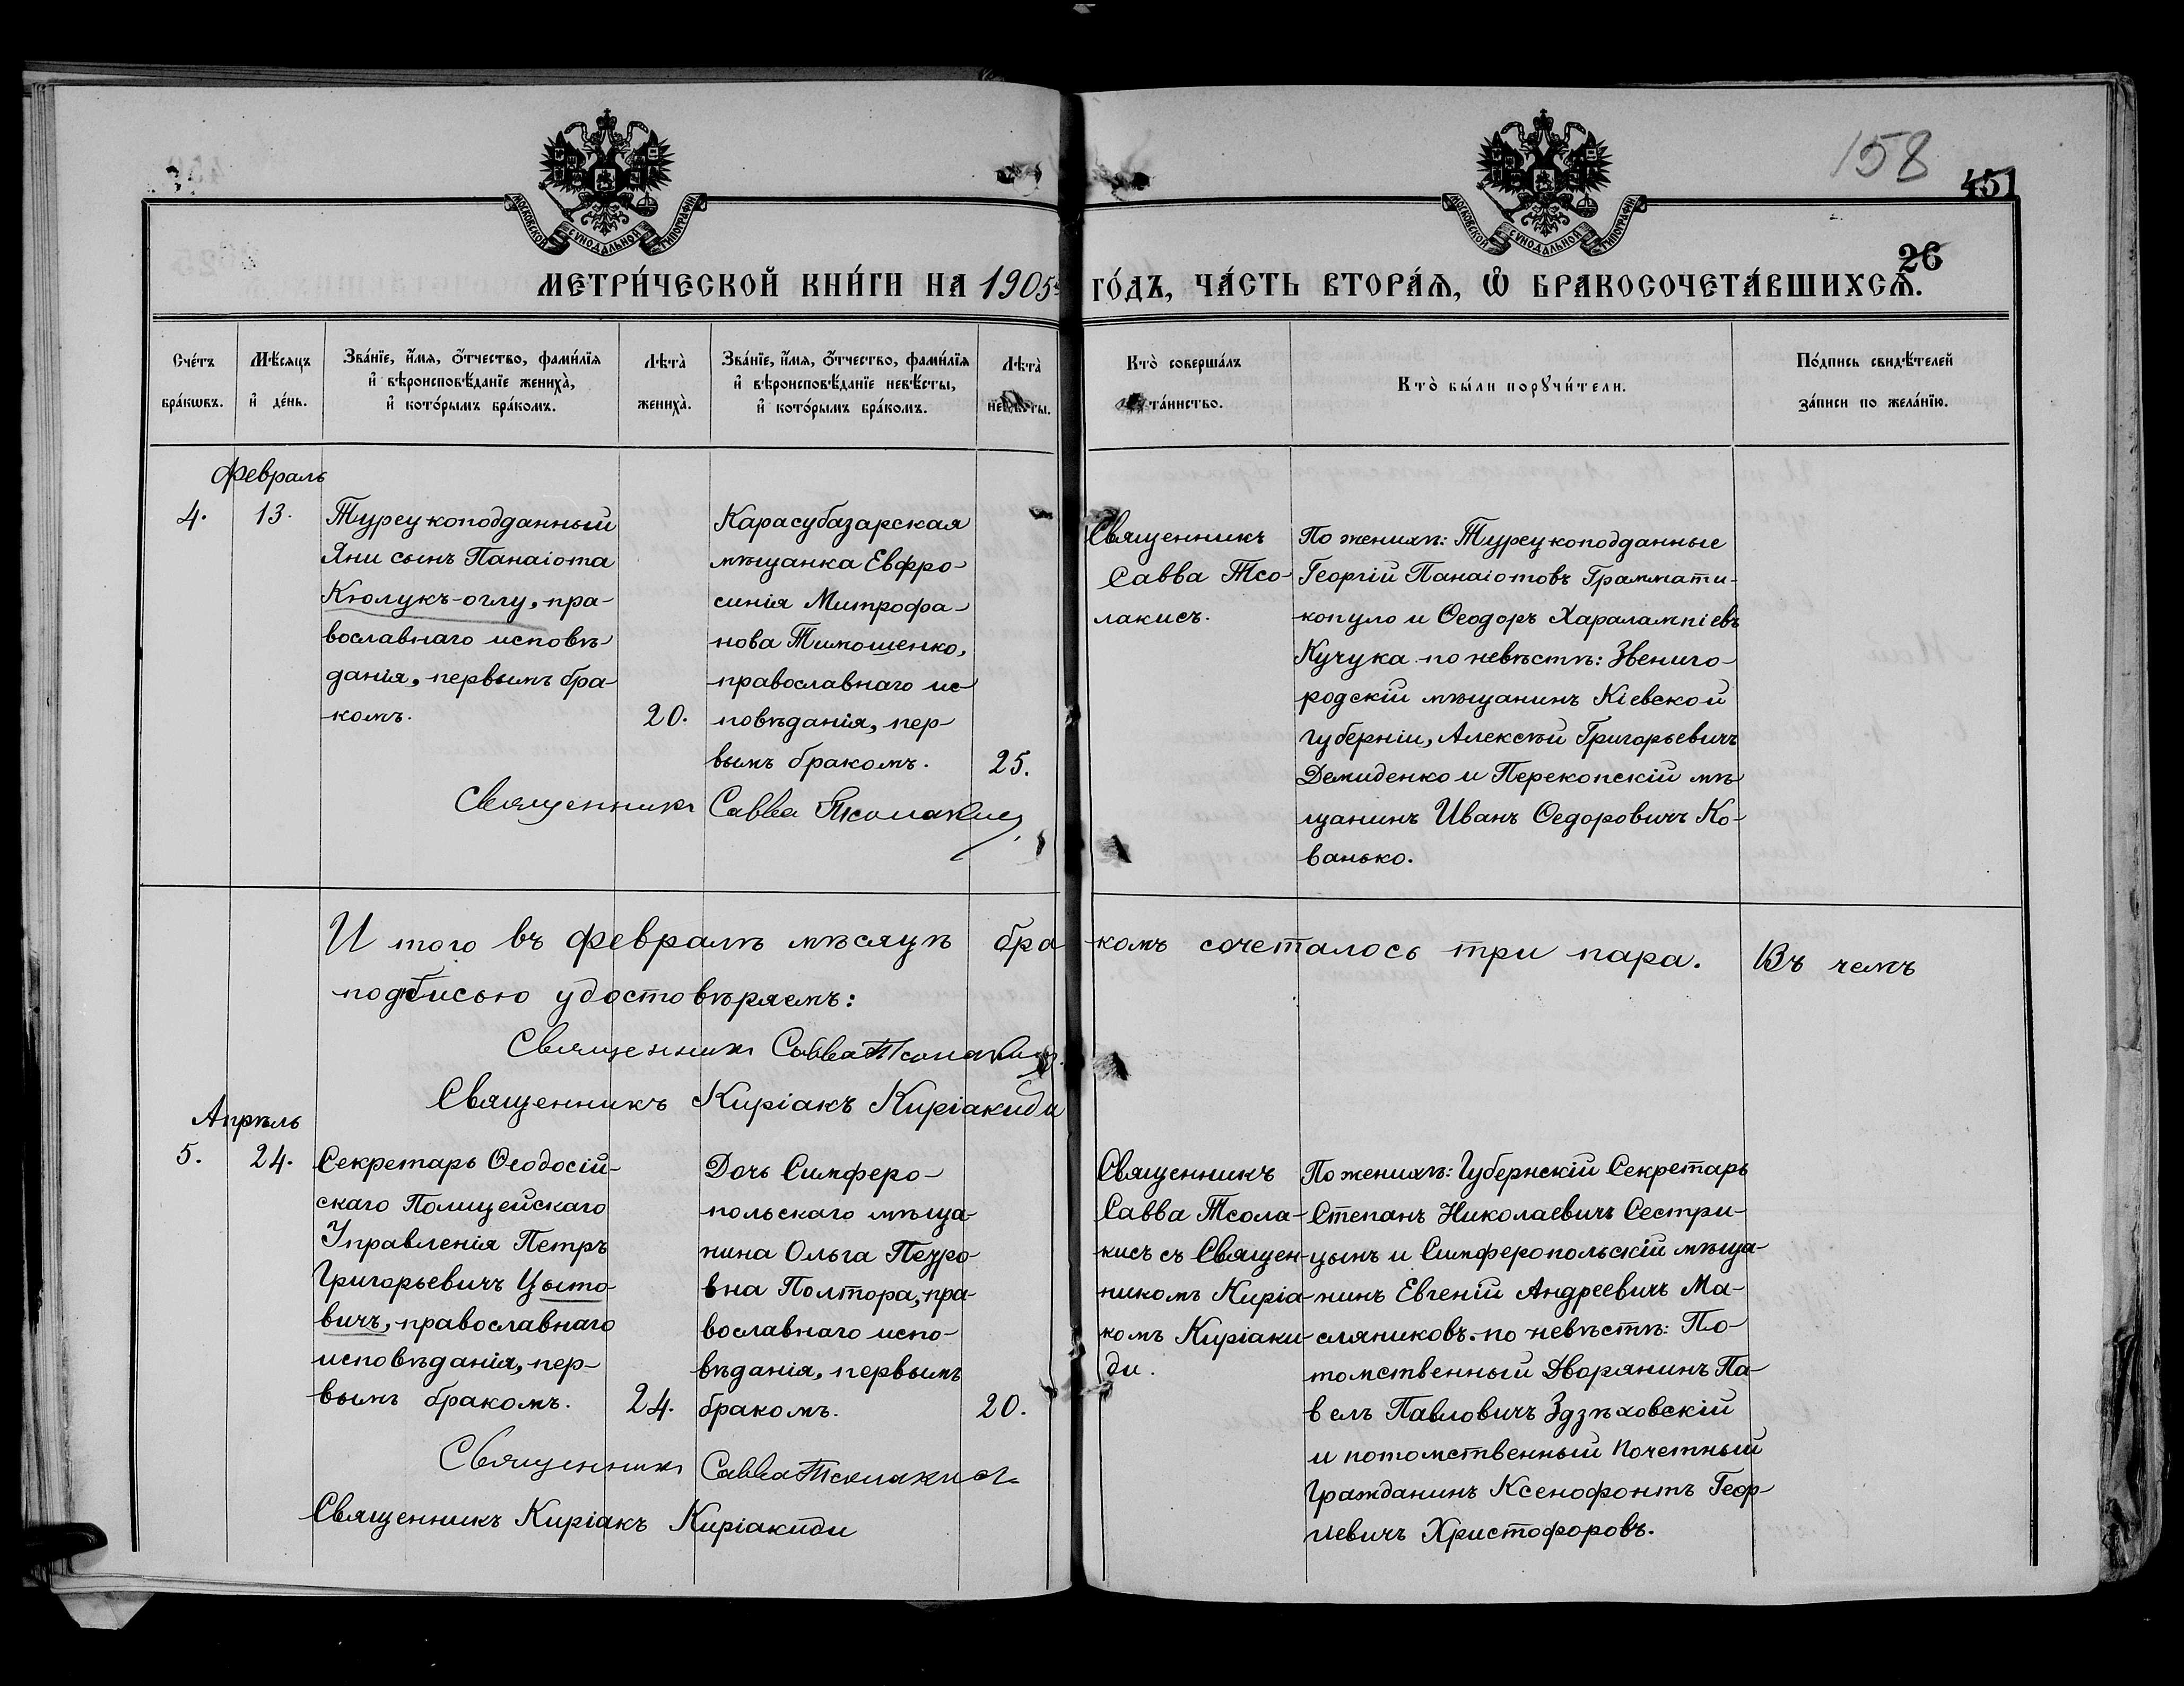 158
451
26
МОСКОВСКОЙ СѴНОДАЛЬНОЙ ТИПОГРАФІИ
МОСКОВСКОЙ СѴНОДАЛЬНОЙ ТИПОГРАФІИ
МЕТРИ́ЧЕСКОЙ КНИ́ГИ НА 1905й ГО́ДЪ, ЧА́СТЬ ВТОРА́Ѧ, Ѽ БРАКОСОЧЕТА́ВШИХСѦ.
Сче́тъ
бра́кѡвъ.
Мѣ́сяцъ
и҆ де́нь.
Зва́нїе, и҆́мя, ѻ҆́тчество, фами́лїя
и҆ вѣроисповѣ́данїе жениха̀,
и҆ кото́рымъ бра́комъ.
Лѣта̀
жениха̀.
Зва́нїе, и҆́мя, ѻ҆́тчество, фами́лїя
и҆ вѣроисповѣ́данїе невѣ́сты,
и҆ кото́рымъ бра́комъ.
Лѣта̀
невѣ́сты.
Кто̀ соверша́лъ
та́инство.
Кто̀ бы́ли порꙋчи́тели.
По́дпись свидѣ́телей
за́писи по жела́нїю.
Февраль
4.
13.
Турецкоподданный
Яни сынъ Панаіота
Кюлукъ-оглу, пра-
вославнаго исповѣ-
данія, первымъ бра-
комъ.
20.
Карасубазарская
мѣщанка Евфро-
синія Митрофа-
нова Тимошенко,
православнаго ис-
повѣданія, пер-
вымъ бракомъ.
25.
Священникъ
Савва Тсо-
лакисъ.
По женихѣ: Турецкоподданные
Георгій Панаіотовъ Граммати-
копуло и Ѳеодоръ Харалампіевъ
Кучука. по невѣстѣ: Звениго-
родскій мѣщанинъ Кіевской
губерніи, Алексѣй Григорьевичъ
Демиденко и Перекопскій мѣ-
щанинъ Иванъ Ѳедоровичъ Ко-
ванько.
Священникъ Савва Тсолакис
И того въ Февралѣ мѣсяцѣ бракомъ сочеталось три пара. Въ чемъ
подписью удостовѣряемъ:
Священникъ Савва Тсолакис.
Священникъ Киріакъ Киріакиди
Апрѣль
5.
24.
Секретарь Ѳеодосій-
скаго Полицейскаго
Управленія Петръ
Григорьевичъ Цыто-
вичъ, православнаго
исповѣданія, пер-
вымъ бракомъ.
24.
Дочь Симферо-
польскаго мѣща-
нина Ольга Петро-
вна Полтора, пра-
вославнаго испо-
вѣданія, первымъ
бракомъ.
20.
Священникъ
Савва Тсола-
кисъ съ Священ-
никомъ Киріа-
комъ Киріаки-
ди.
По женихѣ: Губернскій Секретарь
Степанъ Николаевичъ Сестри-
цынъ и Симферопольскій мѣща-
нинъ Евгеній Андреевичъ Ма-
сляниковъ. по невѣстѣ: По-
томственный Дворянинъ Па-
велъ Павловичъ Здзѣховскій
и потомственный Почетный
Гражданинъ Ксенофонтъ Геор-
гіевичъ Христофоровъ.
Священникъ Савва Тсолакис
Священникъ Киріакъ Киріакиди